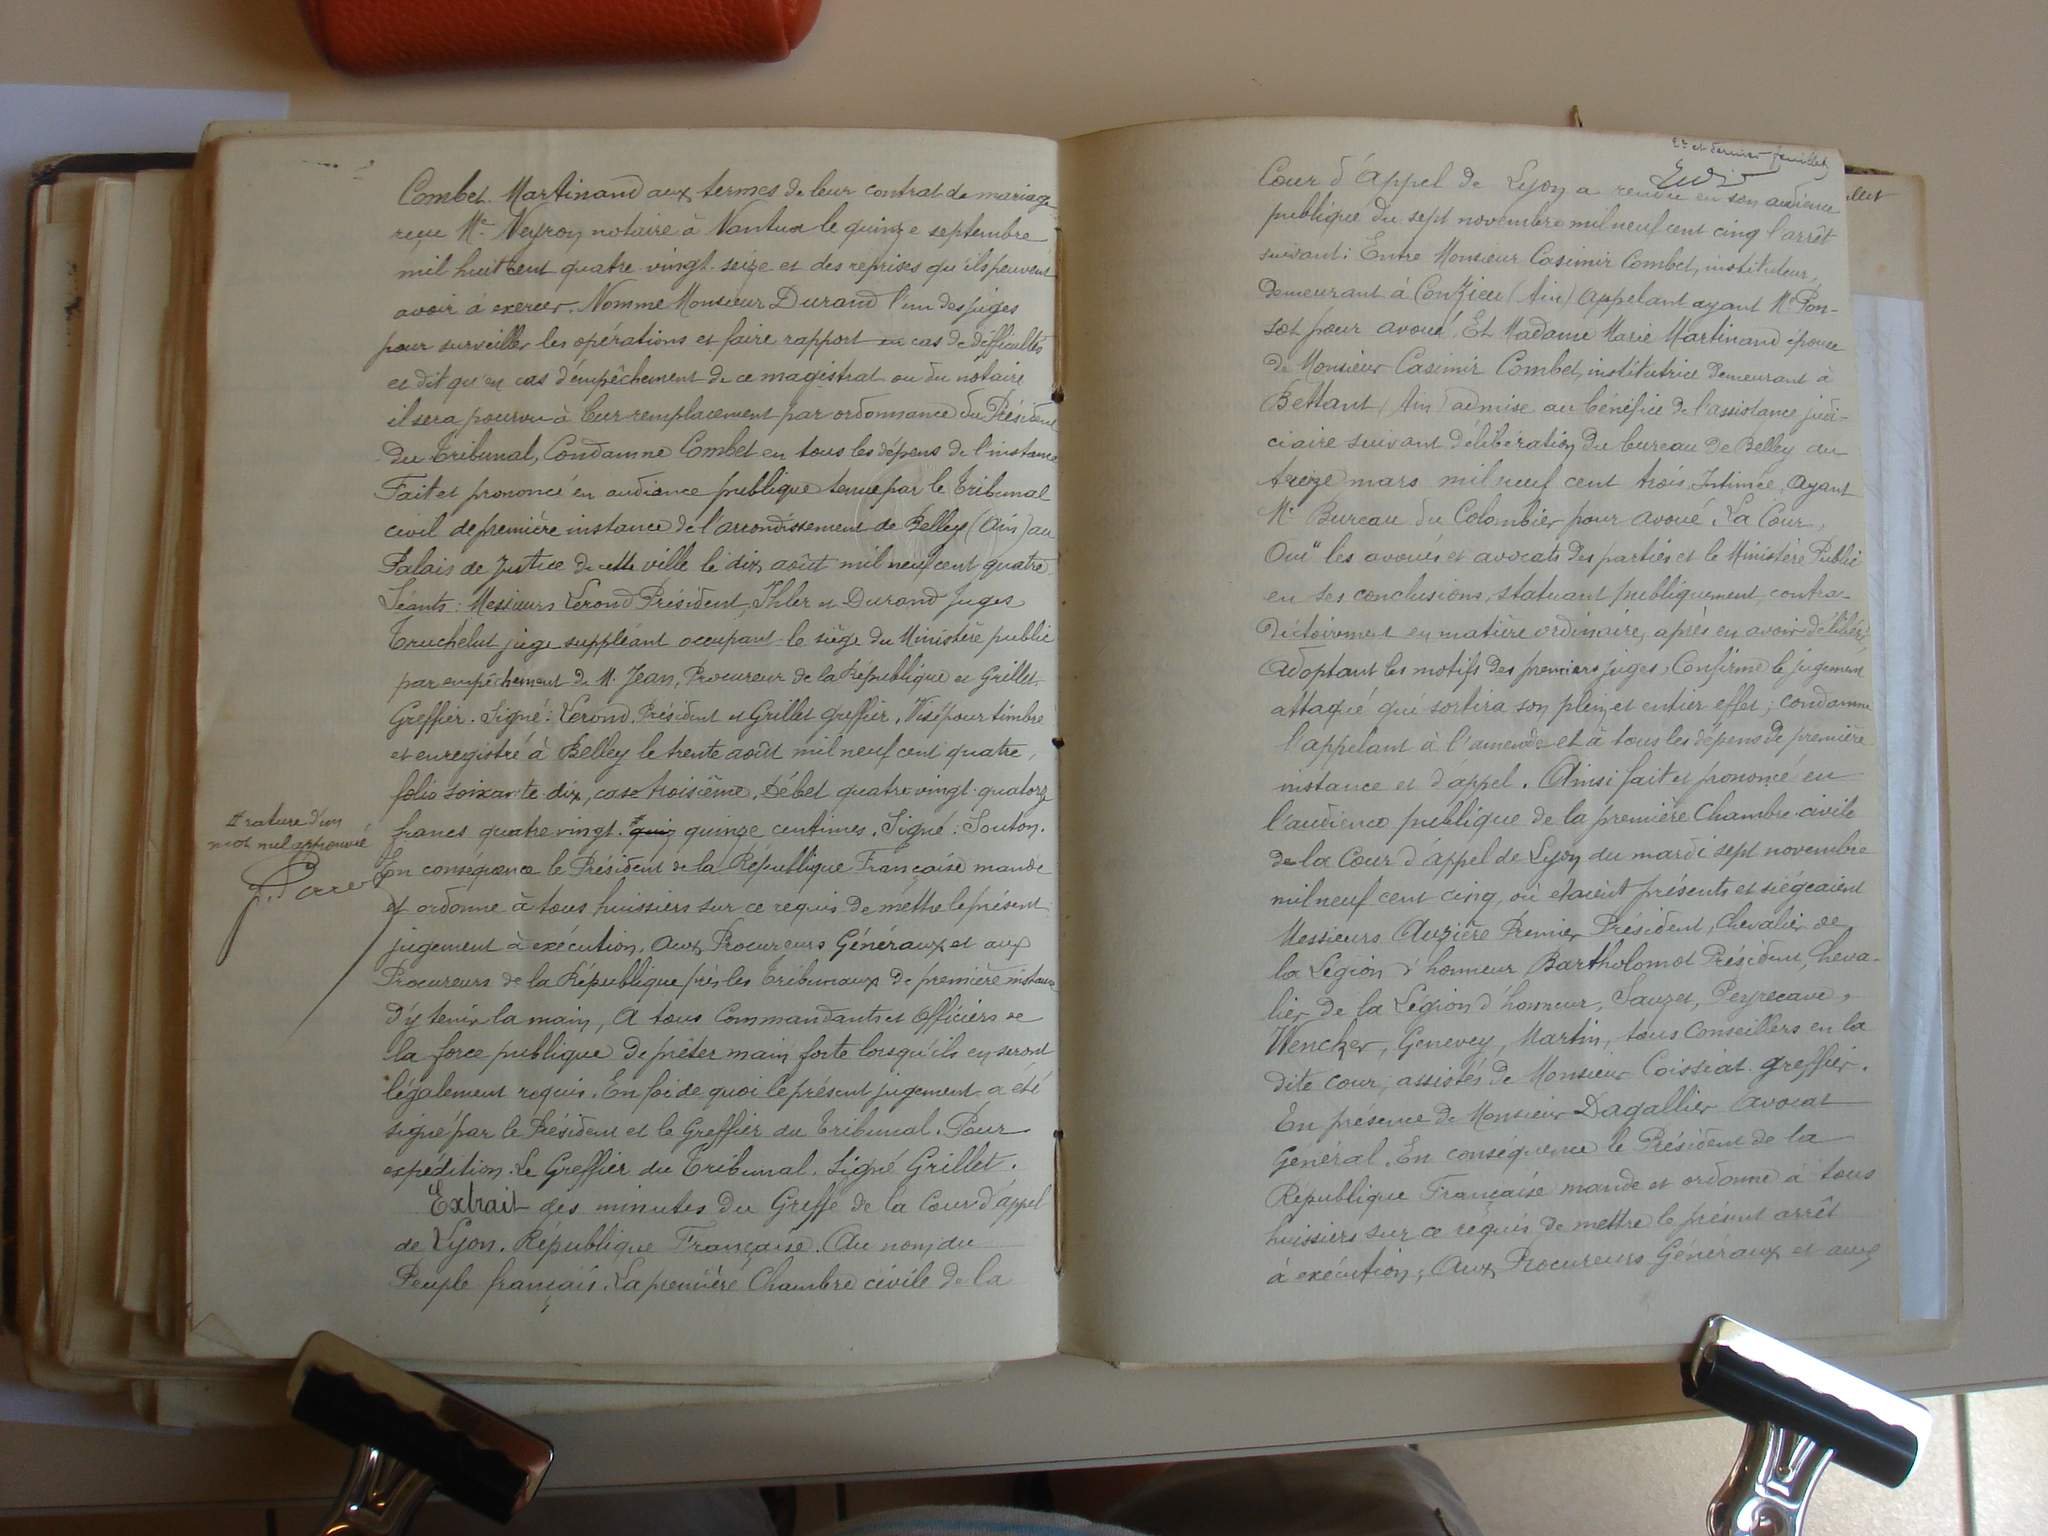 Combet-Martinand aux termes de leur contrat de mariage
reçu Me Neyron notaire à Nantua le quinze septembre
mil huit cent quatre-vingt-seize et des reprises qu'ils peuvent
avoir à exercer. Nomme Monsieur Durand l'un des juges
pour surveiller les opérations et faire rapport en cas de difficultés
et dit qu'en cas d'empêchement de ce magistrat ou du notaire
il sera pourvu à leur remplacement par ordonnance du Président
du Tribunal, Condamne Combet en tous les dépens de l'instance
Fait et prononcé en audience publique tenue par le Tribunal
civil de première instance de l'arrondissement de Belley (Ain) au
Palais de Justice de cette ville le dix août mil neuf cent quatre
Séants: Messieurs Verond Président, Ihler et Durand Juges
Truchelut juge suppléant occupant le siège du Ministère public
par empêchement de M. Jean, Procureur de la République et Grillet
Greffier. Signé: Verond, Président et Grillet greffier. Visé pour timbre
et enregistré à Belley le trente août mil neuf cent quatre,
folio soixante-dix, case troisième, Débet quatre-vingt-quatorze
# rature d'un
mot nul approuvé
francs quatre-vingt-# quin quinze centimes. Signé: Souton.
En conséquence le Président de la République Française mande
et ordonne à tous huissiers sur ce requis de mettre le présent
jugement à exécution, Aux Procureurs Généraux et aux
Procureurs de la République près les Tribunaux de première instance
d'y tenir la main, A tous Commandants et Officiers de
la force publique de prêter main forte lorsqu'ils en seront
légalement requis. En foi de quoi le présent jugement a été
signé par le Président et le Greffier du Tribunal. Pour
expédition. Le Greffier du Tribunal. Signé Grillet.
Extrait des minutes du Greffe de la Cour d'appel
de Lyon. République Française. Au nom du
Peuple français. La première Chambre civile de la
2e et dernier feuillet
Cour d'Appel de Lyon a rendu en son audience
publique du sept novembre mil neuf cent cinq l'arrêt
suivant: Entre Monsieur Casimir Combet, instituteur,
demeurant à Conzieu (Ain) Appelant ayant Me Pon-
sot pour avoué. Et Madame Marie Martinand épouse
de Monsieur Casimir Combet, institutrice demeurant à
Bettant (Ain) admise au bénéfice de l'assistance judi-
ciaire suivant délibération du bureau de Belley au
treize mars mil neuf cent trois Intimée, ayant
Me Bureau du Colombier pour avoué. La Cour,
Ouï les avoués et avocats des parties et le Ministère Public
en ses conclusions, statuant publiquement, contra-
dictoirement en matière ordinaire, après en avoir délibéré,
Adoptant les motifs des premiers juges, Confirme le jugement
attaqué qui sortira son plein et entier effet; condamne
l'appelant à l'amende et à tous les dépens de première
instance et d'appel. Ainsi fait et prononcé en
l'audience publique de la première Chambre civile
de la Cour d'appel de Lyon du mardi sept novembre
mil neuf cent cinq, où étaient présents et siégeaient
Messieurs Auzière Premier Président, Chevalier de
la Légion d'honneur Bartholomot Président, Cheva-
lier de la Légion d'honneur, Sauzet, Peyrecave,
Wencker, Genevey, Martin, tous Conseillers en la
dite cour, assistés de Monsieur Coissiat greffier.
En présence de Monsieur Dagallier Avocat
Général. En conséquence le Président de la
République Française mande et ordonne à tous
huissiers sur ce requis de mettre le présent arrêt
à exécution; Aux Procureurs Généraux et aux